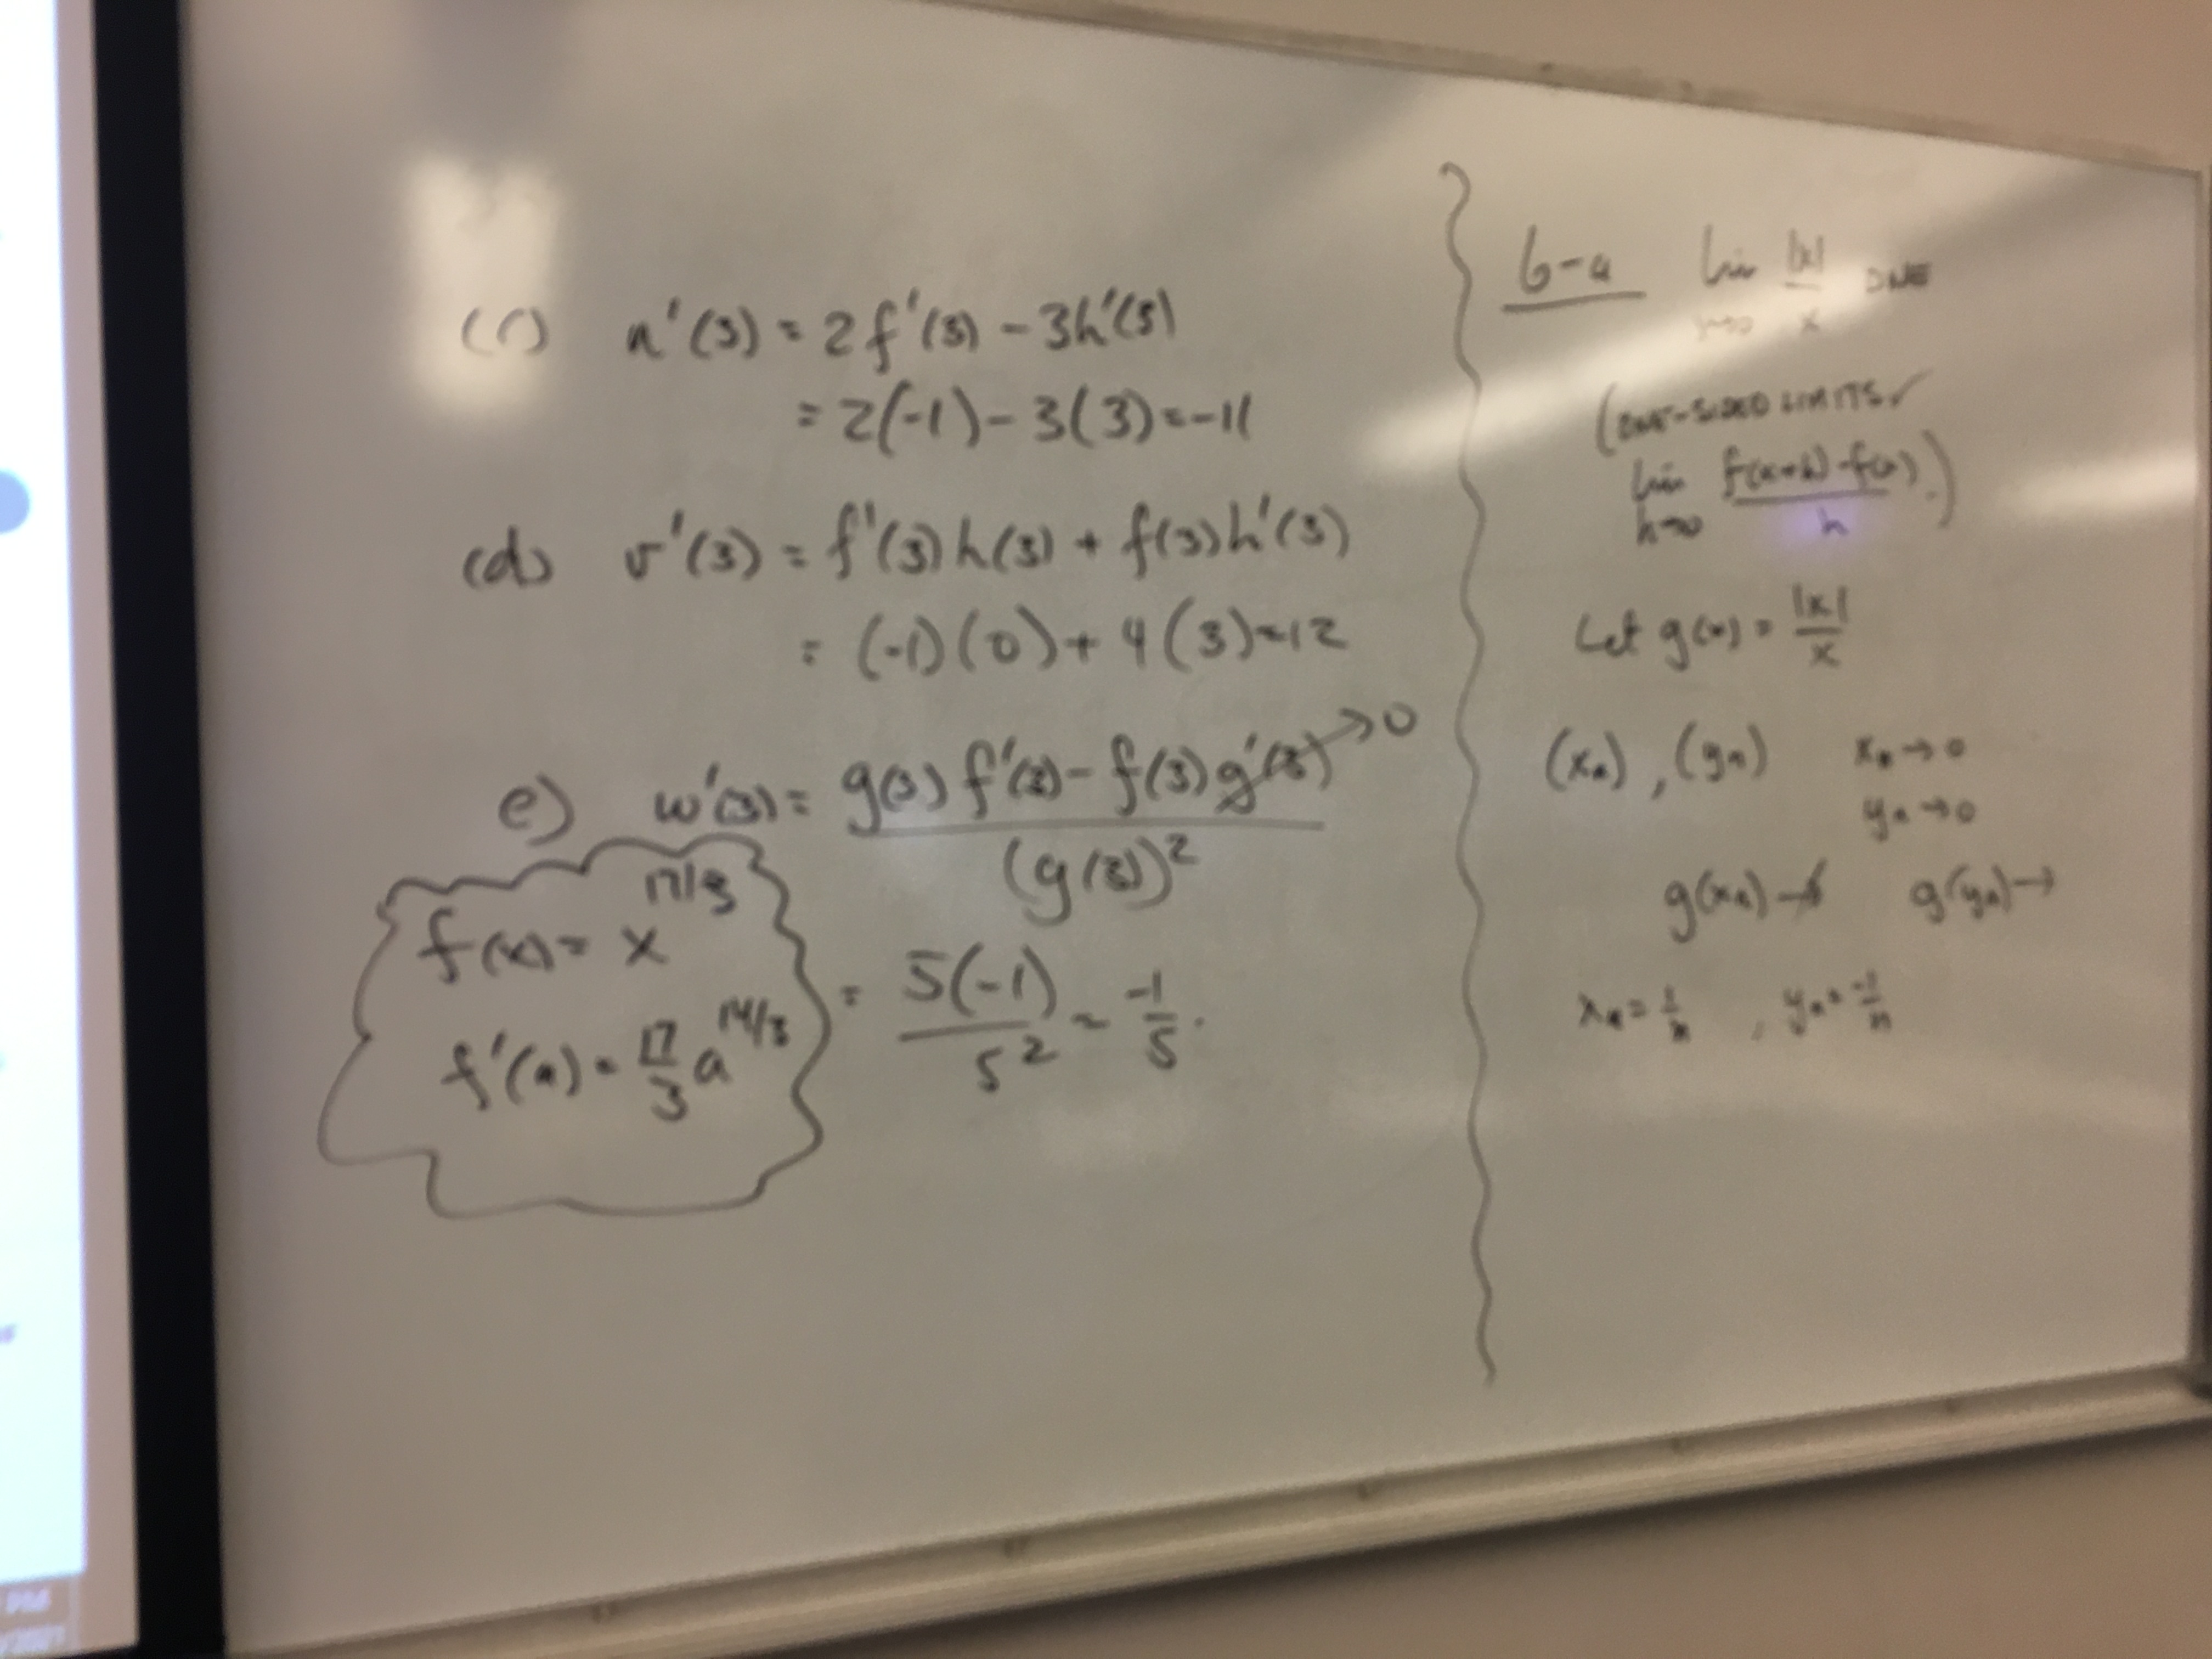 (c) u'(3) = 2f'(3) - 3h'(3)
= 2(-1) - 3(3) = -11
(d) v'(3) = f'(3)h(3) + f(3)h'(3)
= (-1)(0) + 4(3) = 12
e) w'(3) = g(3)f'(3) - f(3)g'(3) → 0
(g(3))²
= 5(-1) / 5² = -1/5.
f(x) = x^17/3
f'(a) = 17/3 a^14/3
6-a lim x→0 |x|/x DNE
(ONE-SIDED LIMITS ✓
lim h→0 f(x+h)-f(x) / h.)
Let g(x) = |x|/x
(xn), (yn) xn → 0
yn → 0
g(xn) → g(yn) →
xn = 1/n, yn = -1/n